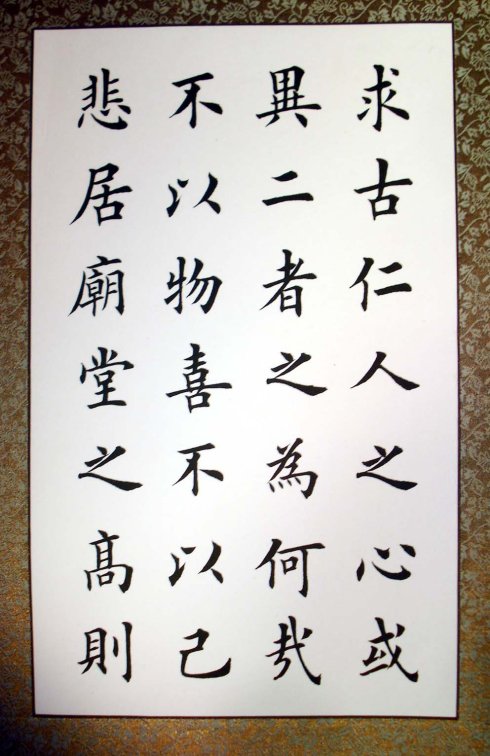 求古仁人之心或
異二者之為何哉
不以物喜不以己
悲居廟堂之髙則